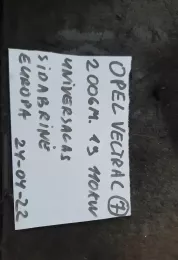 OPEL VECTRA C 7
2006M. 1.9 110KW
UNIVERSALAS
SIDABRINĖ
EUROPA 24-04-22